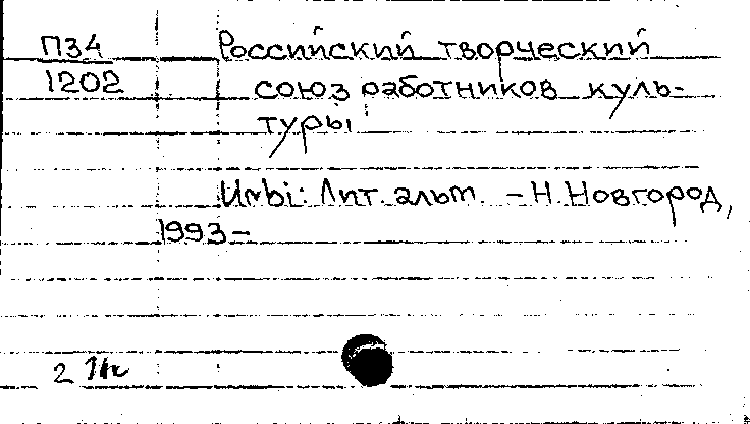 П34
1202
Российский творческий
союз работников куль-
туры
Urbi: Лит. альм. – Н. Новгород,
1993 –
2